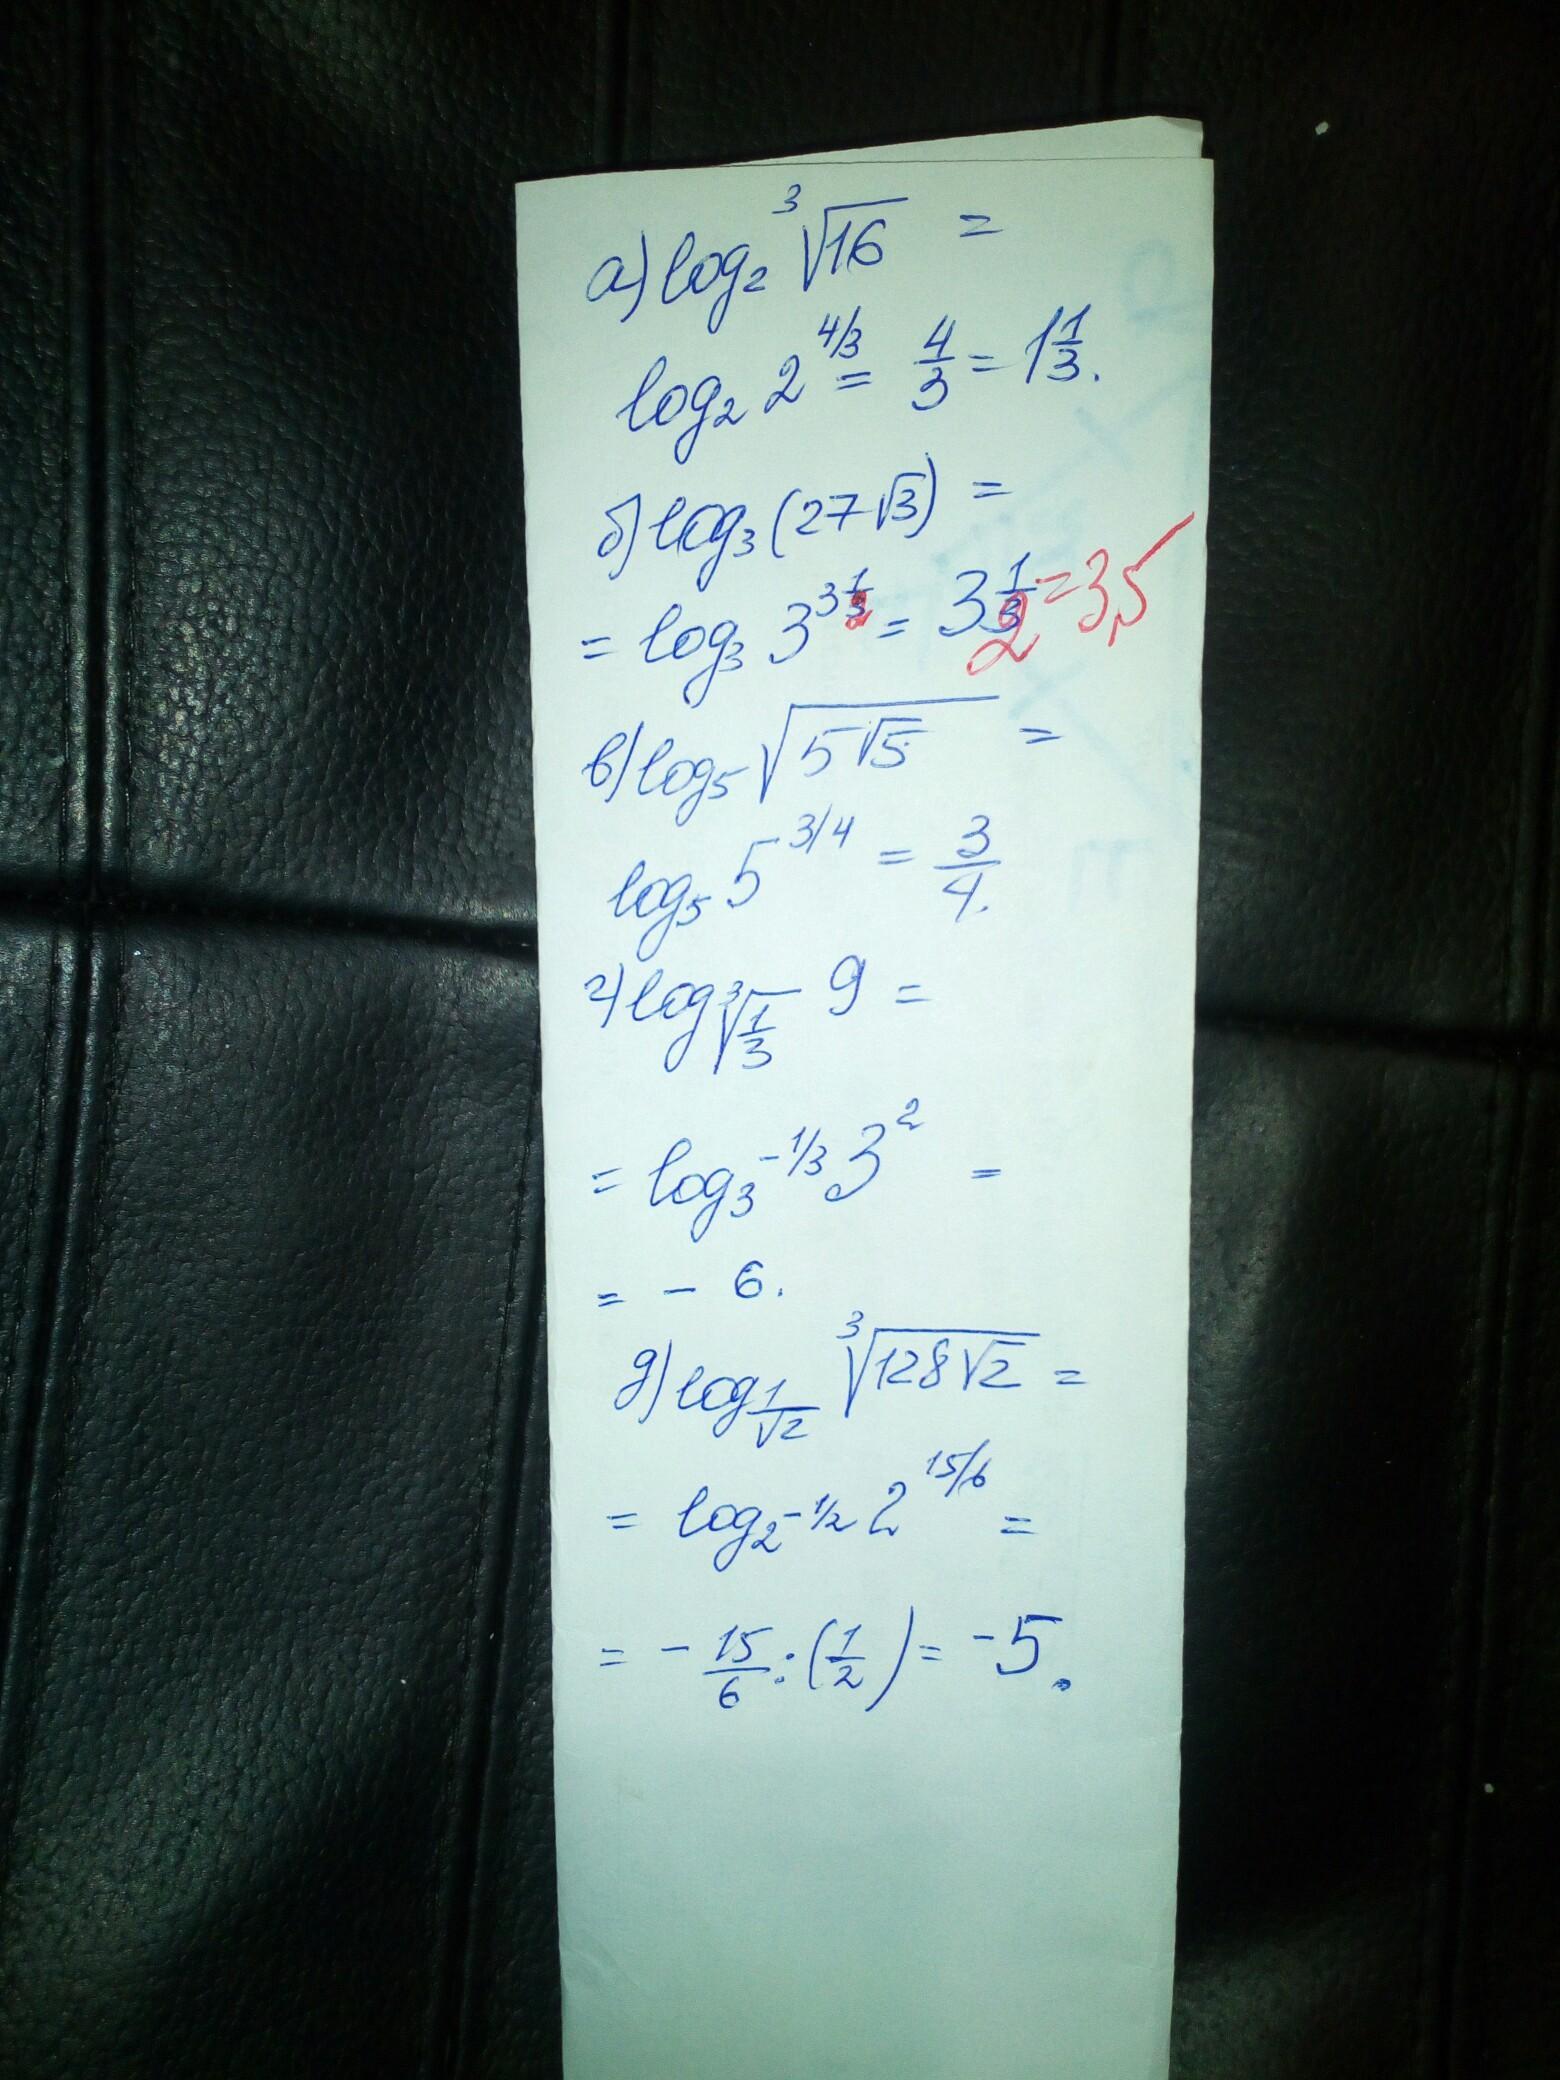 а) log₂ ³√16 =
log₂ 2^4/3 = 4/3 = 1 1/3.
б) log₃ (27√3) =
= log₃ 3^3 1/2 = 3 1/2 = 3,5
в) log₅ √(5√5) =
log₅ 5^3/4 = 3/4.
г) log_³√(1/3) 9 =
= log_3^-1/3 3² =
= - 6.
д) log_1/√2 ³√(128√2) =
= log_2^-1/2 2^15/6 =
= - 15/6 : (1/2) = -5.